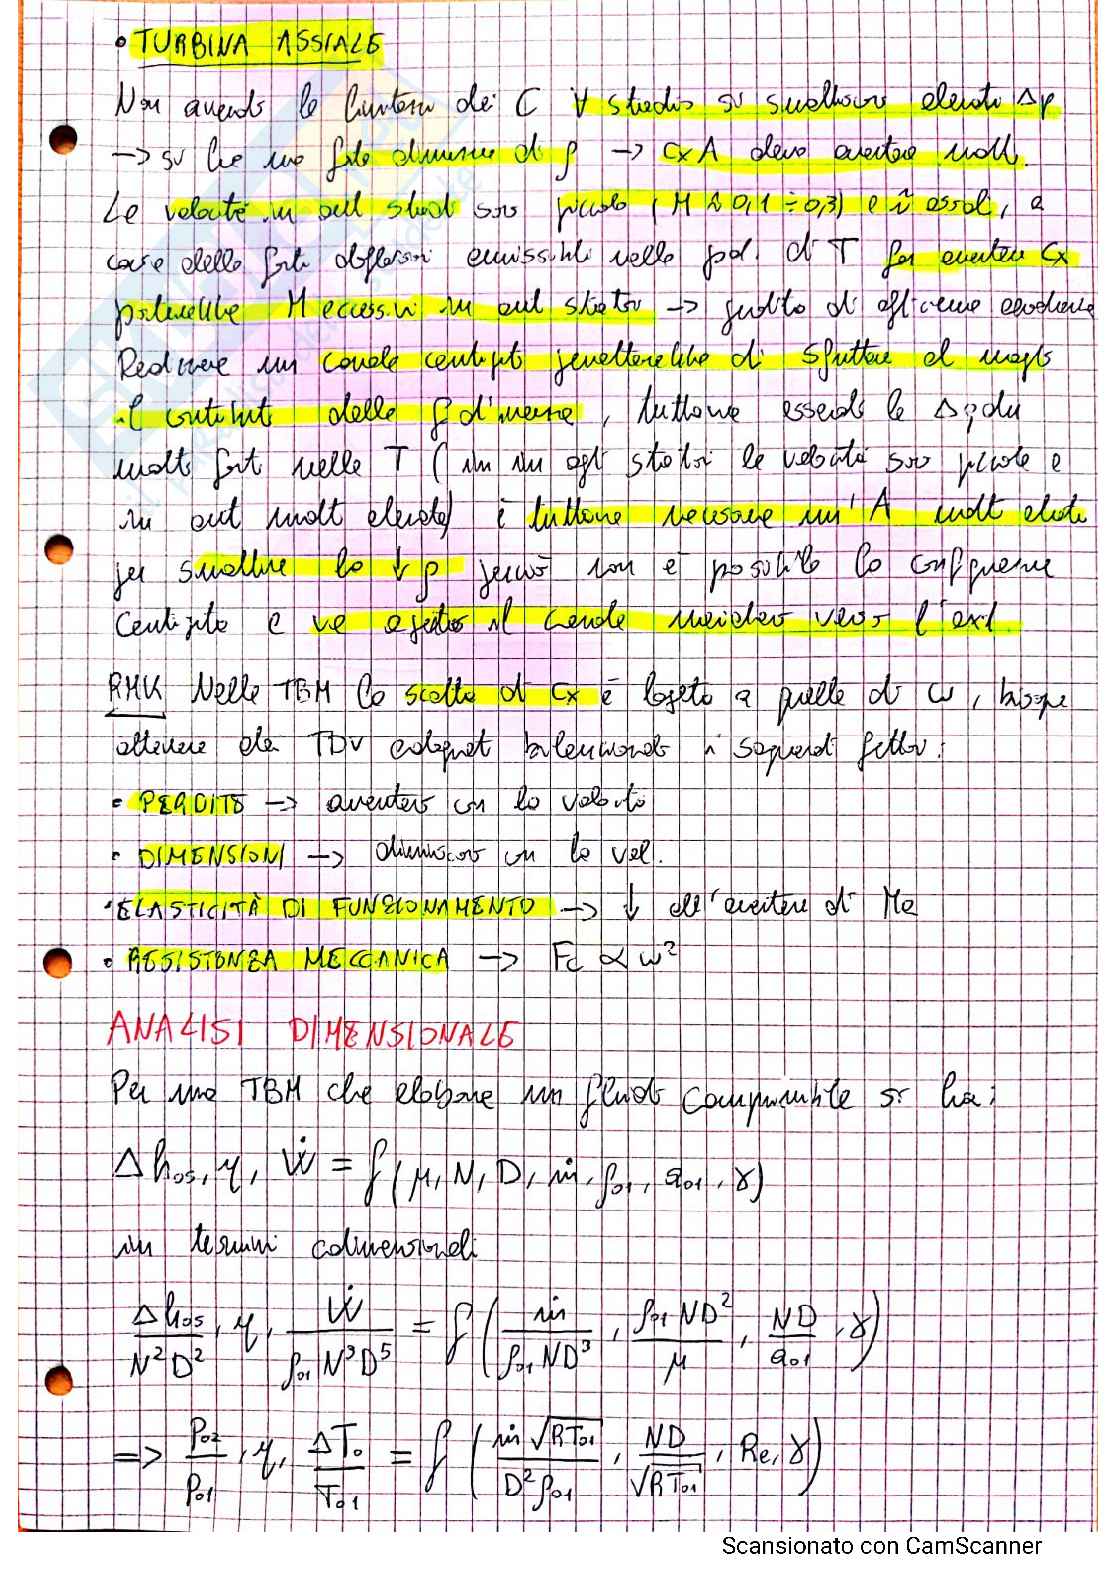 • TURBINA ASSIALE
Non avendo le limitazioni dei C ∀ stadio si smaltiscono elevati Δp
→ si ha una forte diminuz di ρ → CxA deve aumentare molto.
Le velocità in out stadi sono piccole (M ≈ 0,1 ÷ 0,3) e assiali, a
causa delle forti deflessioni ammissibili nelle pal. di T far aumentare Cx
porterebbe M eccessivi in out stator →
Realizzare un canale centrip permetterebbe di sfruttare al meglio
il contributo delle f d'inerzia, tuttavia essendo le
molto forti nelle T (in in agli statori le velocità sono piccole e
in out molto elevate) è tuttavia necessaria un'A molto elevata
per smaltire la ↓ ρ perciò non è possibile la configurazione
centripeta e va aperto il canale meridiano verso l'ext.
RMK Nelle TBM la scelta di Cx è legata a quella di ω, bisogna
ottenere dei TDV adeguati bilanciando i seguenti fattori:
• PERDITE → aumentano con la velocità
• DIMENSIONI → diminuiscono con la vel.
• ELASTICITÀ DI FUNZIONAMENTO → ↓ all'aumentare di Ma
• RESISTENZA MECCANICA → Fc ∝ ω²
ANALISI DIMENSIONALE
Per una TBM che elabora un fluido comprimibile si ha:
Δh₀s, η, Ẇ = f(μ, N, D, ṁ, ρ₀₁, a₀₁, γ)
in termini adimensionali
Δh₀s/N²D², η, Ẇ/ρ₀₁N³D⁵ = f(ṁ/ρ₀₁ND³, ρ₀₁ND²/μ, ND/a₀₁, γ)
=> P₀₂/P₀₁, η, ΔT₀/T₀₁ = f(ṁ√RT₀₁/D²P₀₁, ND/√RT₀₁, Re, γ)
Scansionato con CamScanner